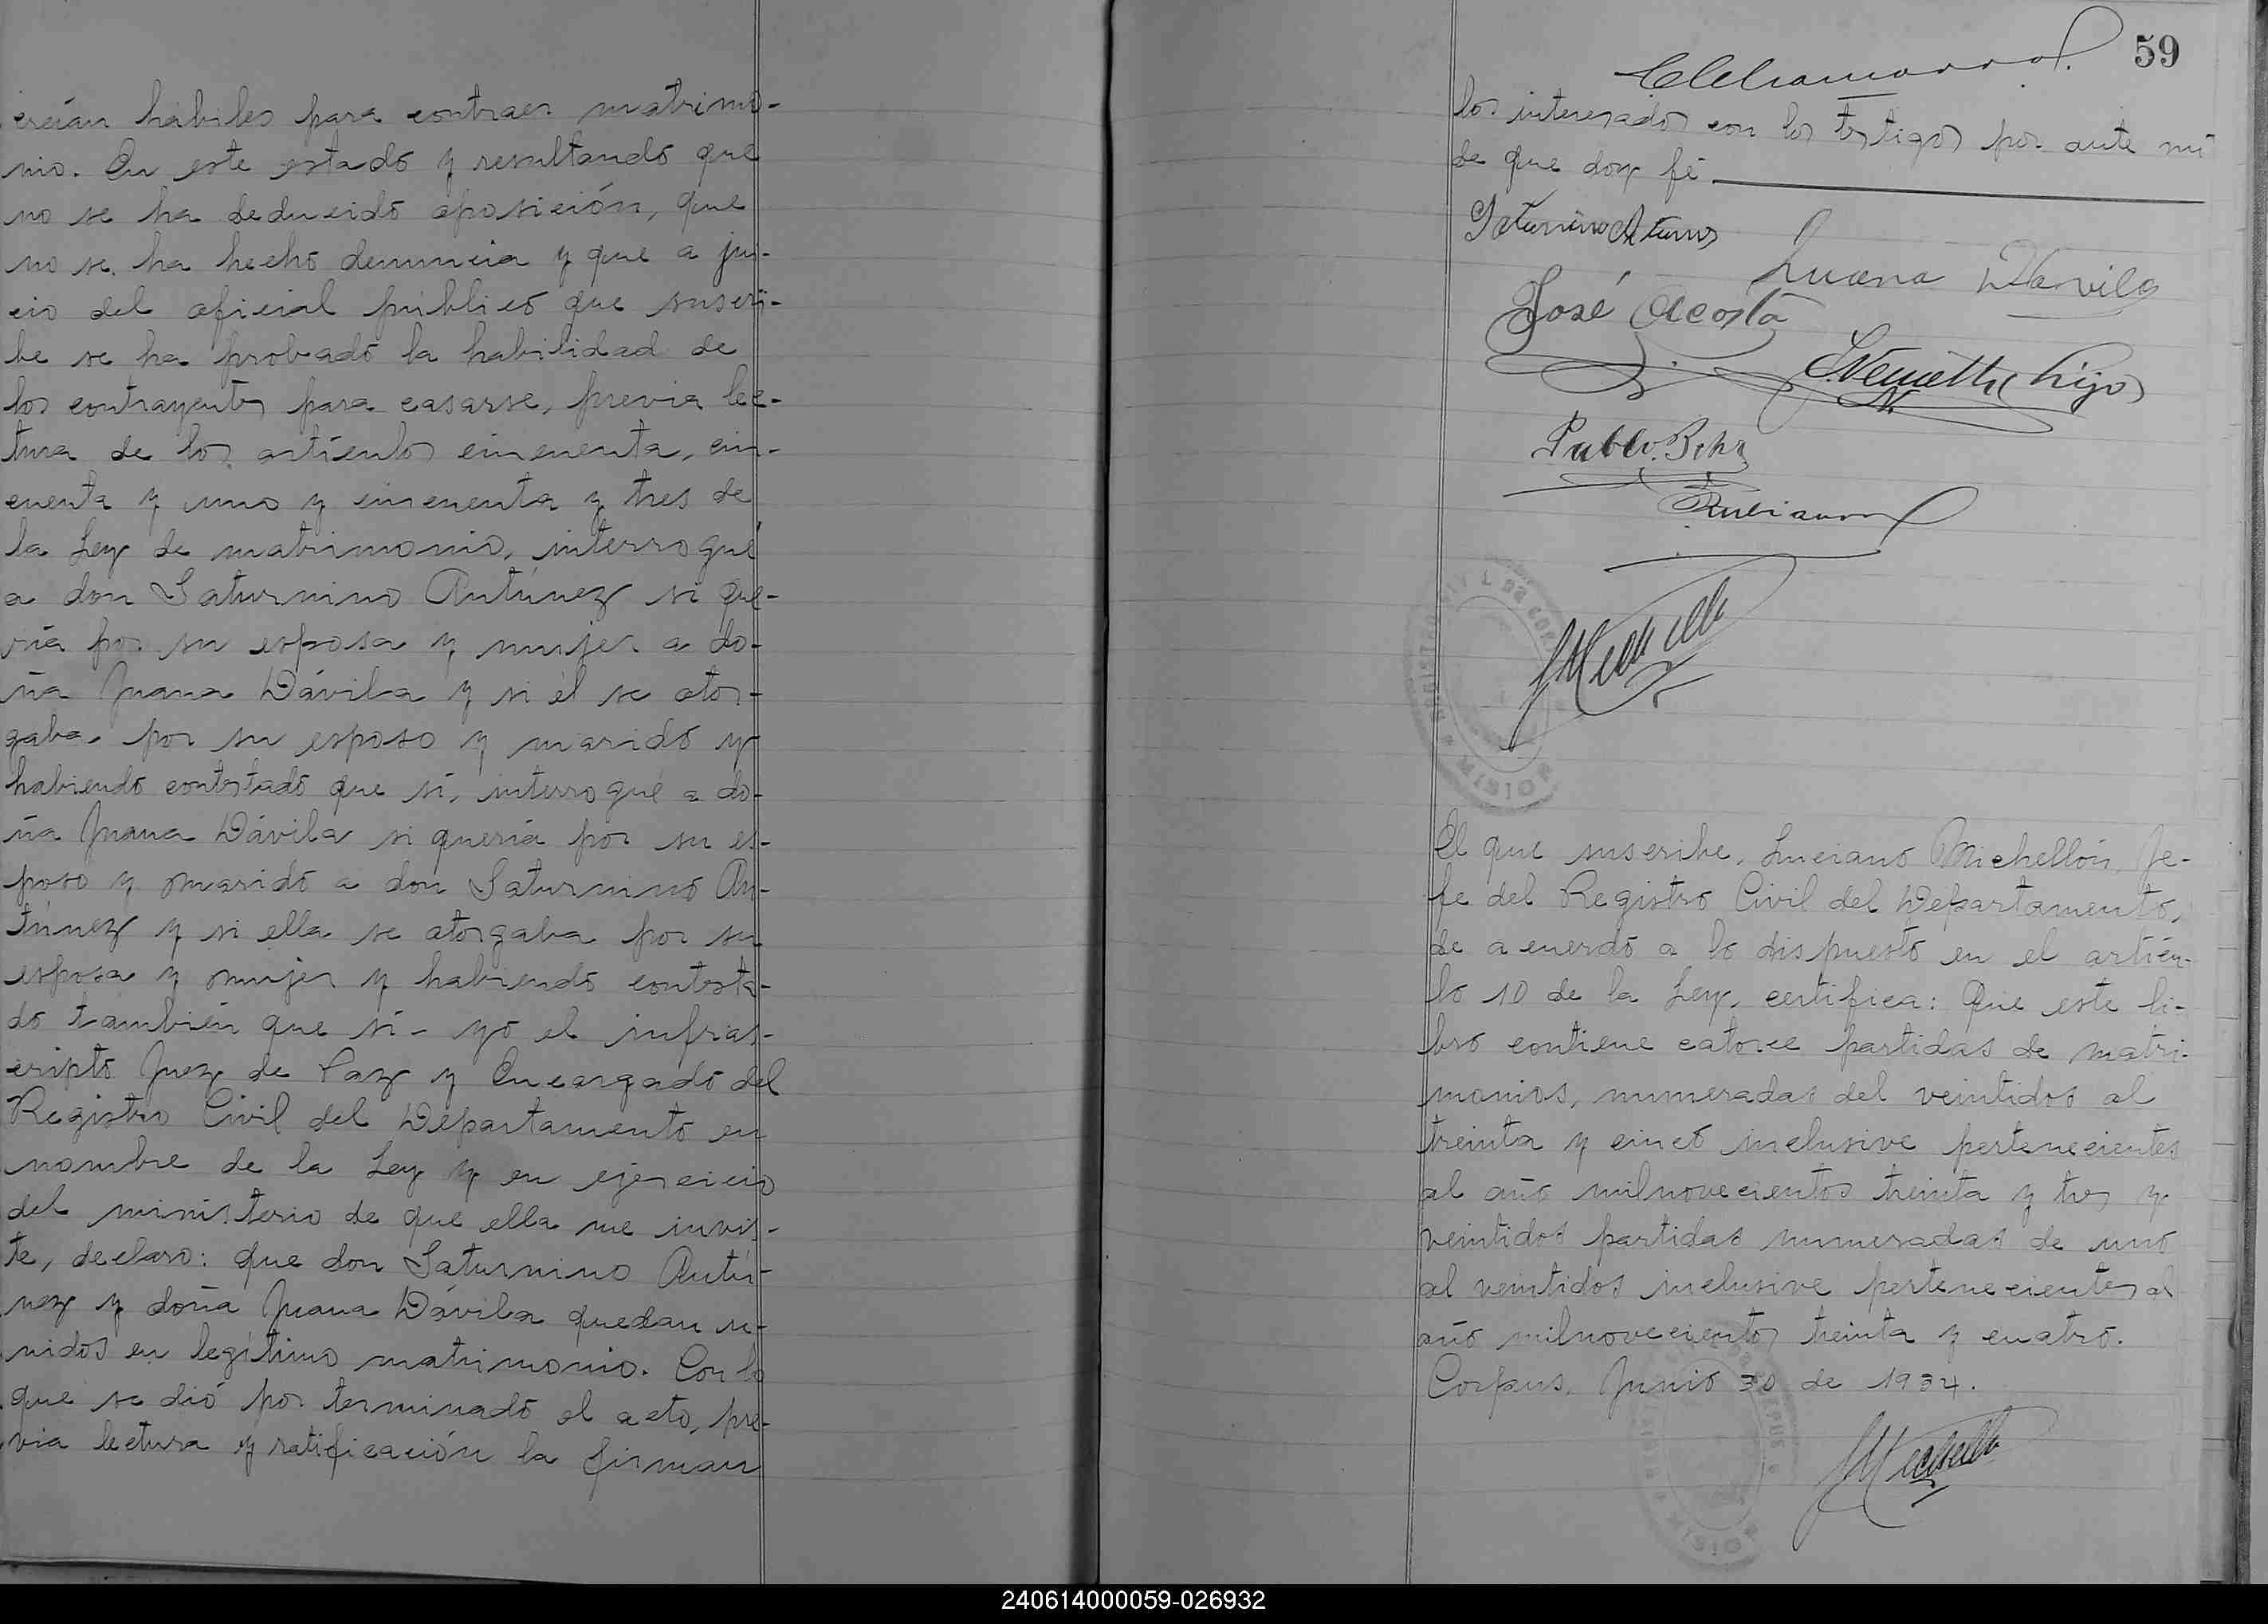 creían hábiles para contraer matrimo-
nio. En este estado y resultando que
no se ha deducido oposición, que
no se ha hecho denuncia y que a jui-
cio del oficial público que suscri-
be se ha probado la habilidad de
los contrayentes para casarse, previa lec-
tura de los artículos cincuenta, cin-
cuenta y uno y cincuenta y tres de
la Ley de matrimonio, interrogué
a don Saturnino Antúnez si que-
ría por su esposa y mujer a do-
ña Juana Dávila y si él se otor-
gaba por su esposo y marido y
habiendo contestado que sí, interrogué a do-
ña Juana Dávila si quería por su es-
poso y marido a don Saturnino An-
túnez y si ella se otorgaba por su
esposa y mujer y habiendo contesta-
do también que sí - yo el infras-
cripto Juez de Paz y Encargado del
Registro Civil del Departamento en
nombre de la Ley y en ejercicio
del ministerio de que ella me invis-
te, declaro: que don Saturnino Antú-
nez y doña Juana Dávila quedan u-
nidos en legítimo matrimonio. Con lo
que se dió por terminado el acto, pre-
via lectura y ratificación la firman
59
los interesados con los testigos por ante mí
de que doy fé
Juana Davila
José Acosta
hijo
Pablo
El que suscribe, Luciano Michellón, Je-
fe del Registro Civil del Departamento,
de acuerdo a lo dispuesto en el artícu-
lo 10 de la Ley, certifica: Que este li-
bro contiene catorce partidas de matri-
monios, numeradas del veintidos al
treinta y cinco inclusive pertenecientes
al año milnovecientos treinta y tres y
veintidos partidas numeradas de uno
al veintidos inclusive pertenecientes al
año milnovecientos treinta y cuatro.
Corpus, Junio 30 de 1934.
240614000059-026932